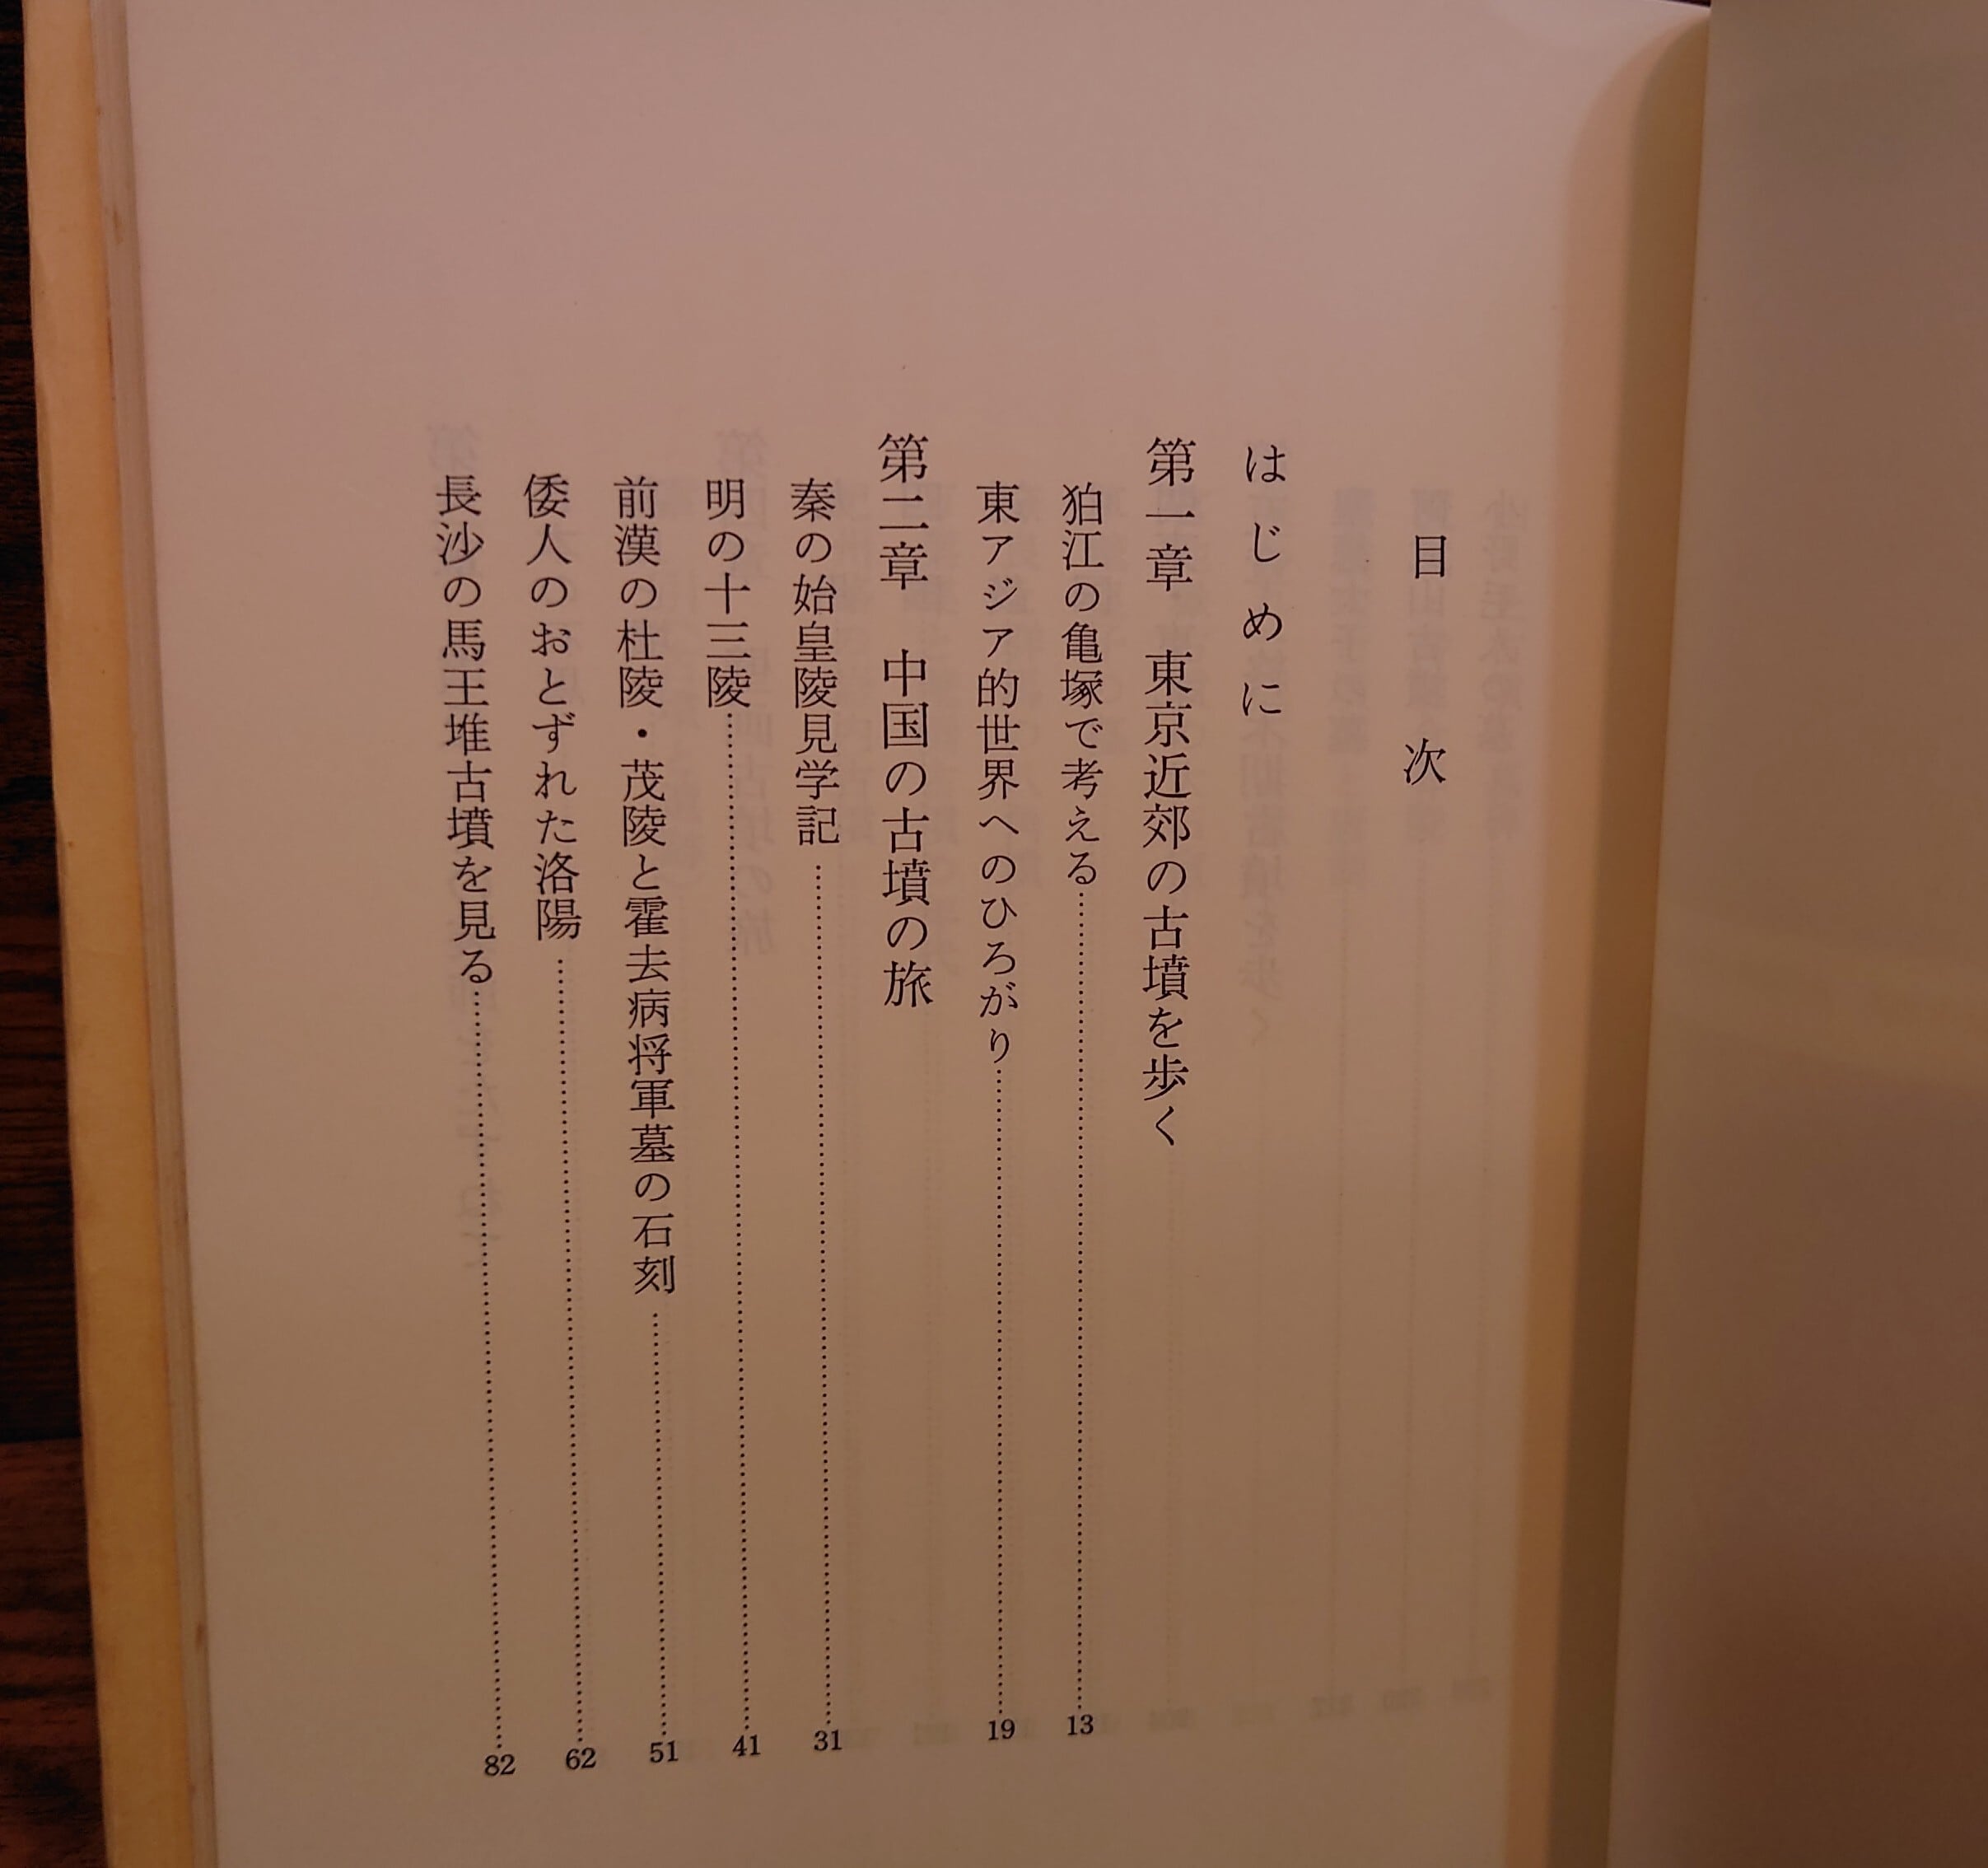 目次
はじめに
第一章 東京近郊の古墳を歩く
狛江の亀塚で考える……13
東アジア的世界へのひろがり……19
第二章 中国の古墳の旅
秦の始皇陵見学記……31
明の十三陵……41
前漢の杜陵・茂陵と霍去病将軍墓の石刻……51
倭人のおとずれた洛陽……62
長沙の馬王堆古墳を見る……82